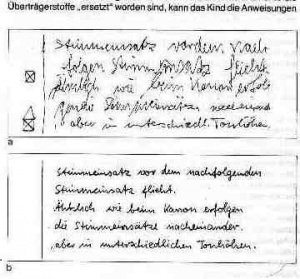 Überträgerstoffe „ersetzt" worden sind, kann das Kind die Anweisungen
Stimmeinsatz vor dem nach
folgen Stimmeinsatz flieht.
Ähnlich wie beim Kanon erfolg
Stimmeinsätze nacheinand
aber in unterschiedl. Tonhöhen.
a
Stimmeinsatz vor dem nachfolgenden
Stimmeinsatz flieht.
Ähnlich wie beim Kanon erfolgen
die Stimmeinsätze nacheinander.
aber in unterschiedlichen Tonhöhen.
b